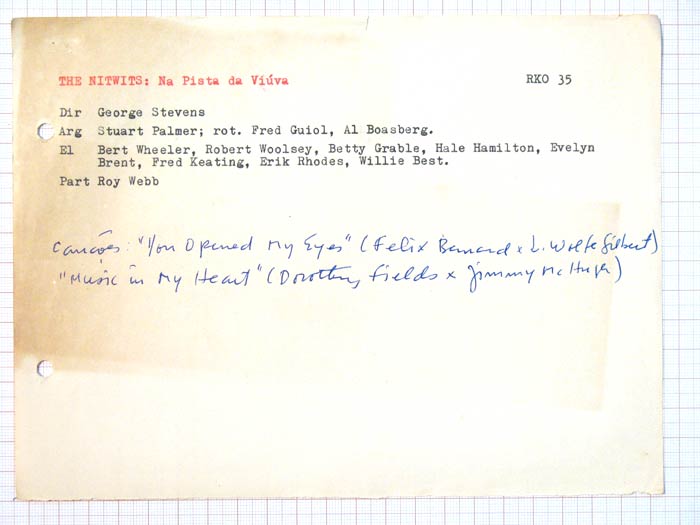 THE NITWITS: Na Pista da Viúva RKO 35
Dir George Stevens
Arg Stuart Palmer; rot. Fred Guiol, Al Boasberg.
El Bert Wheeler, Robert Woolsey, Betty Grable, Hale Hamilton, Evelyn
Brent, Fred Keating, Erik Rhodes, Willie Best.
Part Roy Webb
Canções: "You Opened My Eyes" (Felix Bernard x L. Wolfe Gilbert)
"Music in My Heart" (Dorothy Fields x Jimmy McHugh)